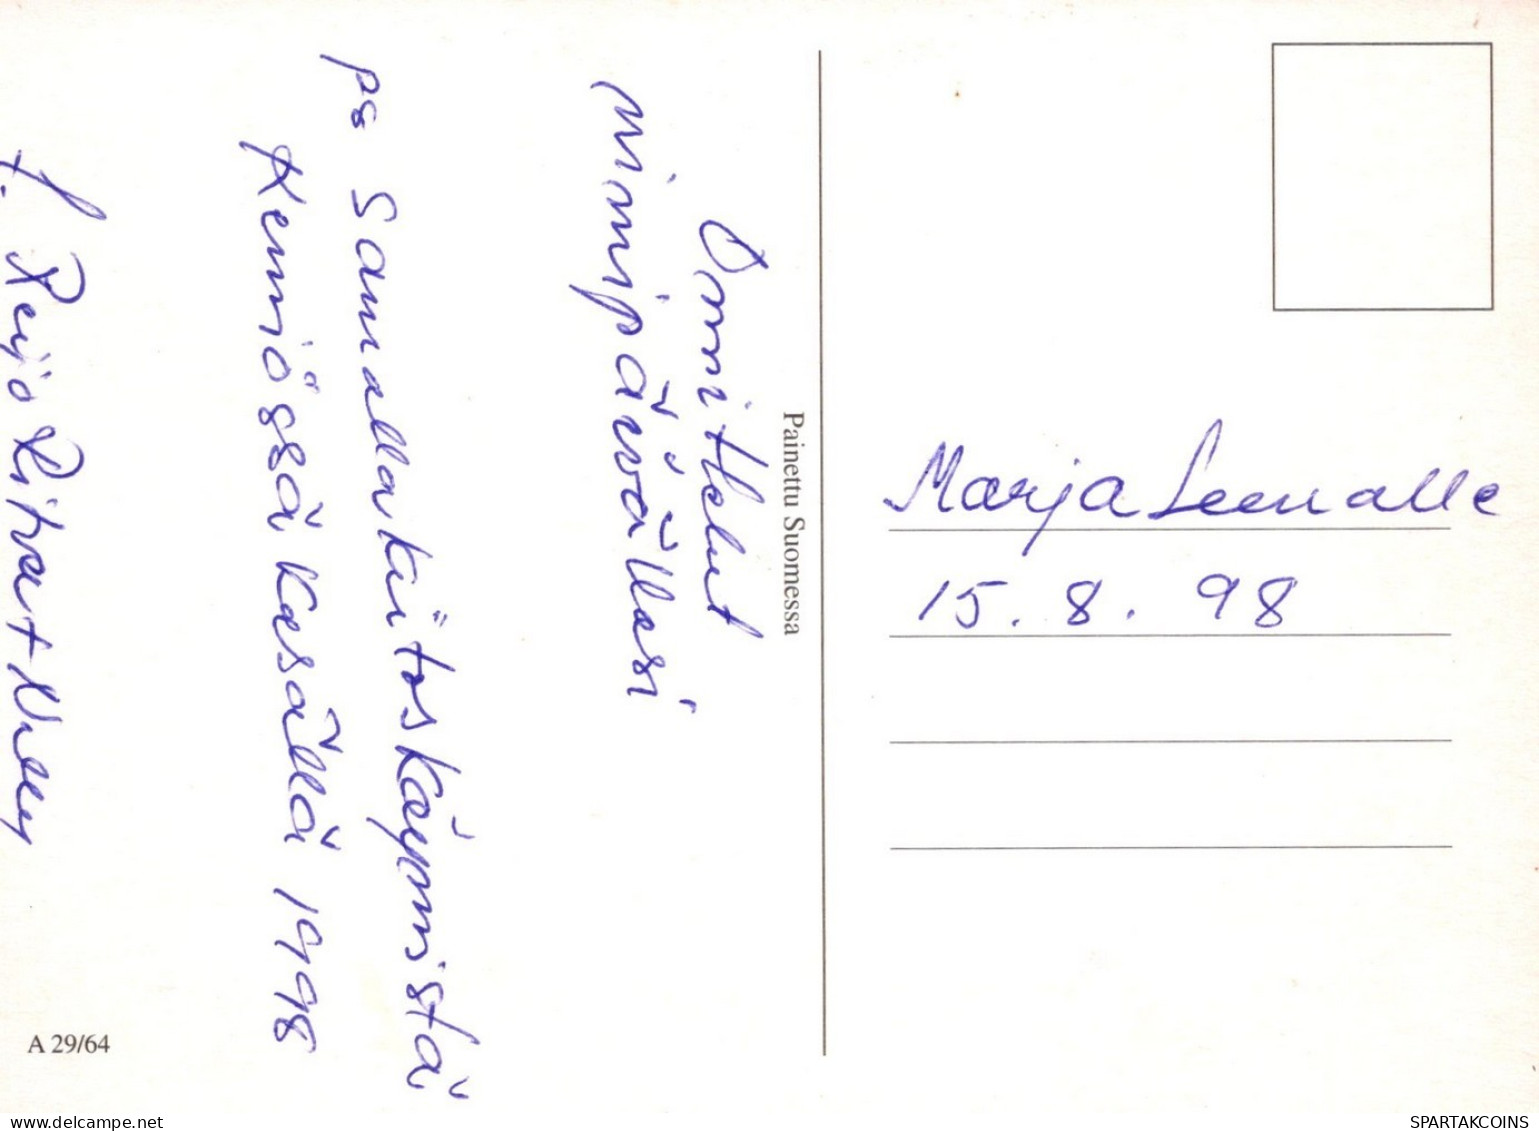 Onnittelut
nimipäivällesi
ps Samalla kiitos käynnistä
Kemiössä kesällä 1998
T. Reijo Ritva +
Painettu Suomessa
Marja Leenalle
15.8.98
A 29/64
delcampe.net
SPARTAKCOINS